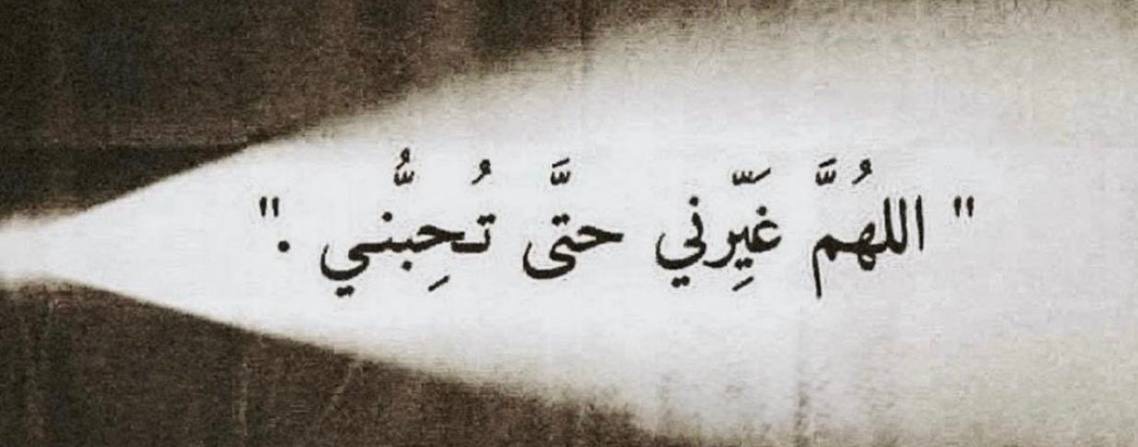 " اللهُمَّ غَيِّرني حتَّى تُحِبُّني ."